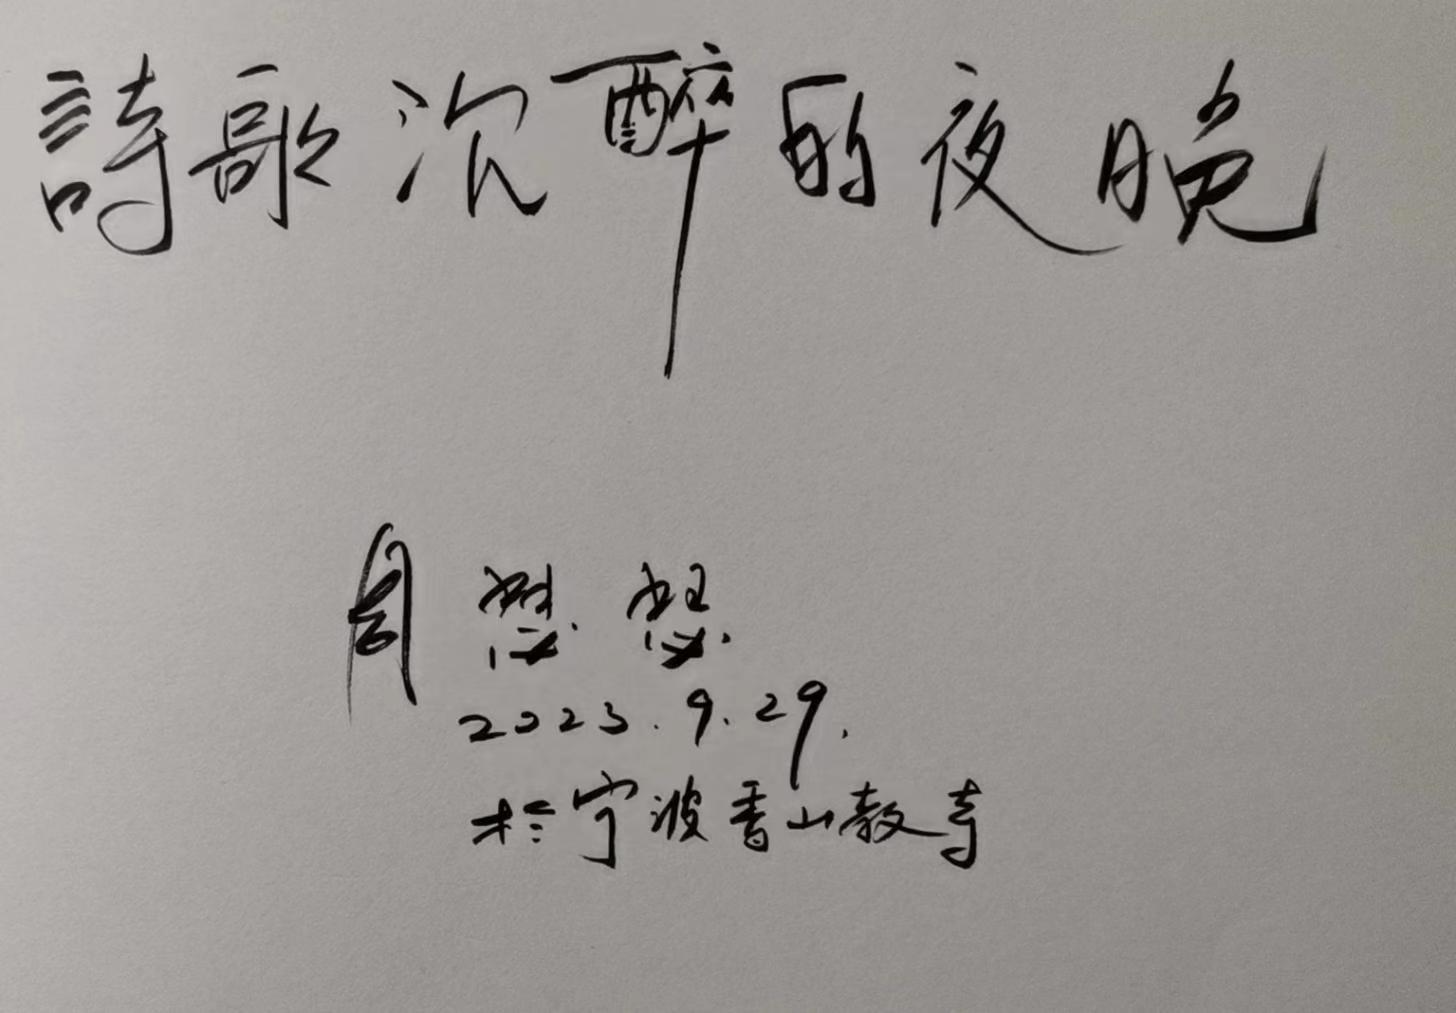 詩歌沉醉的夜晚
周瑟瑟
2023.9.29.
於宁波香山教寺